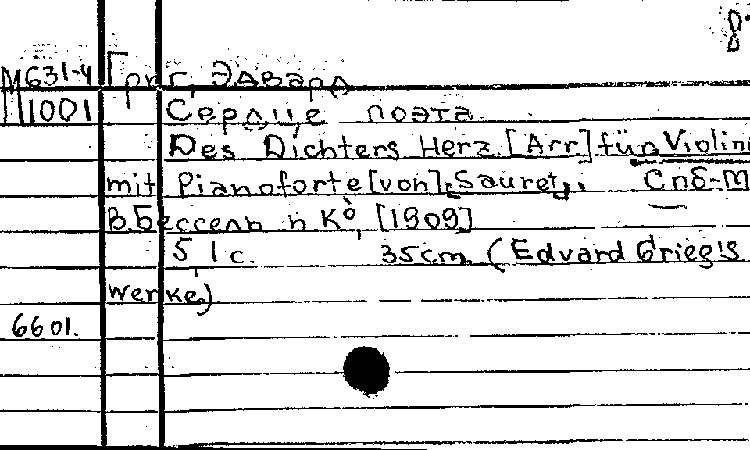 8.
М631-4 Григ, Эдвард
П1001 Сердце поэта.
Des Dichters Herz. [Arr] für Violin
mit Pianoforte [von] E. Sauret. Спб-М
В. Бессель и Ко, [1909]
5 l c. 35cm (Edvard Grieg's
werke.)
6601.